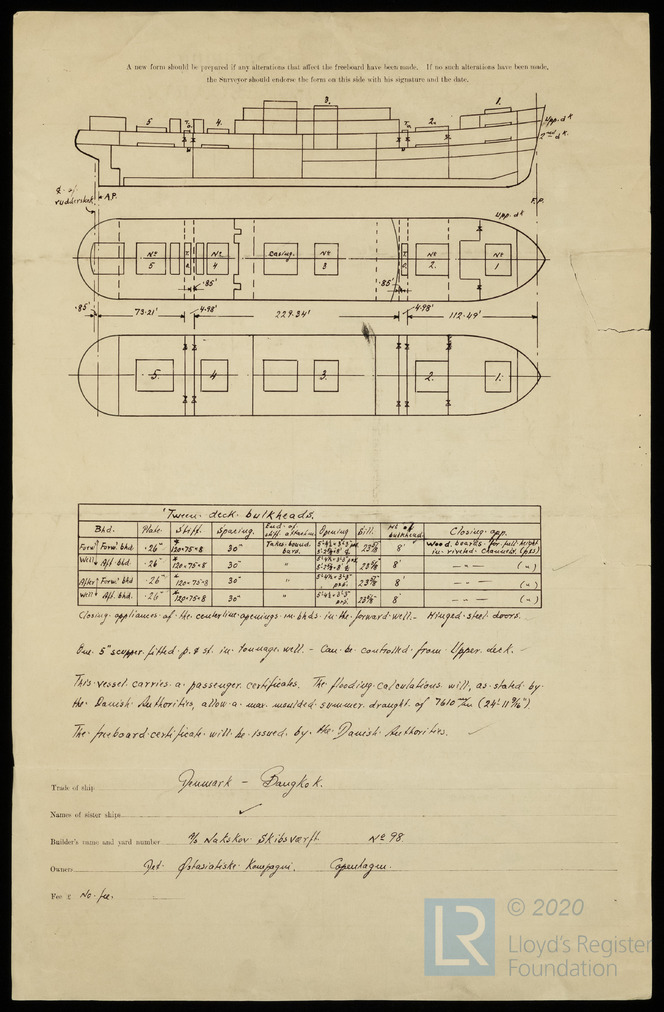 A new form should be prepared if any alterations that affect the freeboard have been made. If no such alterations have been made,
the Surveyor should endorse the form on this side with his signature and the date.
5 4. 3. 2. 1.
Upp. dk
2nd dk.
¢ of rudderstock
A.P.
F.P.
Upp. dk
No 5 No 4 Casing. No 3 No 2. No 1
.85' .85'
.85' 73.21' 4.98' 229.34' 4.98' 112.49'
5. 4. 3. 2. 1.
'Tween deck bulkheads.
Bhd. Plate. Stiff. Spacing. End of stiff. attachm. Opening Sill. Ht of bulkhead. Closing app.
Forw. Well Forw. bhd .26" 120×75×8 30" Takes bound. bars. 8' Wood boards for full height in riveted channels (p&s)
Aft. bhd .26" 120×75×8 30" " 8' (")
After Well Forw. bhd .26" 120×75×8 30" " 8'
Aft. bhd .26" 120×75×8 30" " 8' (")
Closing appliances of the centerline openings in bhds in the forward well. - Hinged steel doors.
One 5" scupper fitted p. & st. in tonnage well. - Can be controlled from Upper deck.
This vessel carries a passenger certificate. The flooding calculations will, as stated by
the Danish Authorities, allow a max. moulded summer draught of 7610 m/m (24'-11 9/16").
The freeboard certificate will be issued by the Danish Authorities.
Trade of ship Denmark - Bangkok.
Names of sister ships
Builder's name and yard number A/S Nakskov Skibsværft. No 98.
Owners Det Østasiatiske Kompagni. Copenhagen.
Fee £ No fee.
© 2020
LR
Lloyd's Register
Foundation